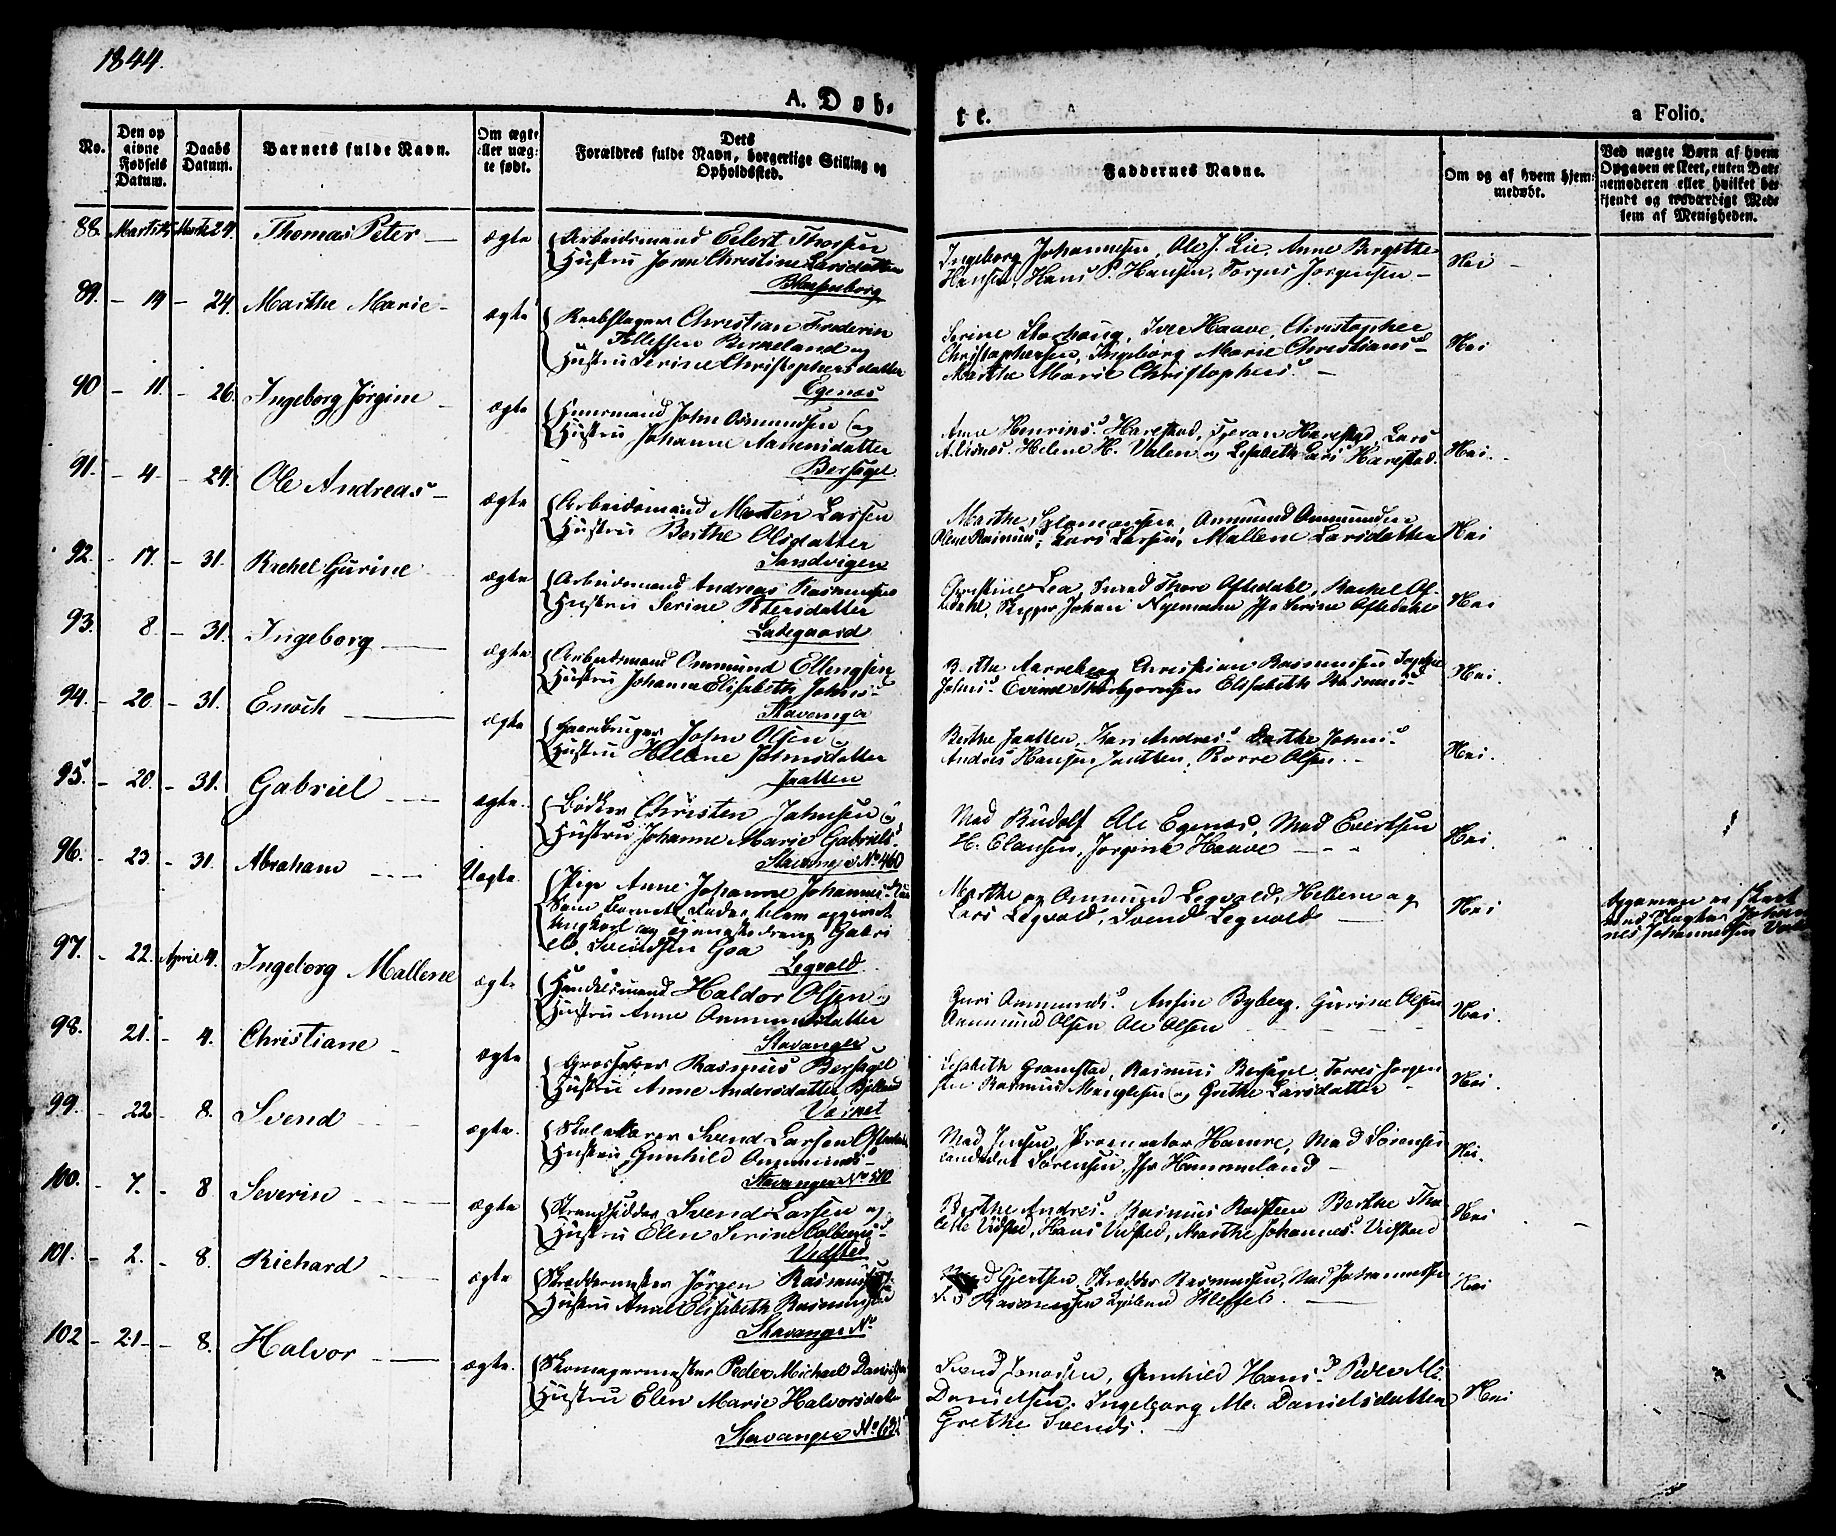 1844.
A. Døb-
te.
a Folio.
No.
Den op
givne
Fødsels
Datum.
Daabs
Datum.
Barnets fulde Navn.
Om ægte
eller uæg-
te født.
Dets
Forældres fulde Navn, borgerlige Stilling og
Opholdssted.
Faddernes Navne.
Om og af hvem hjem-
medøbt.
Ved uægte Børn af hvem
Opgaven er skeet, enten Bar-
nemoderen eller hvilket be-
kjendt og troværdigt Med-
lem af Menigheden.
88. Marts Marts 24. Thomas Peter — ægte
Arbeidsmand Eilert Thorsen
Hustru Joren Christine Larsdatter
Blaasenborg
Ingeborg Johannesen, Ole J. Lie, Anne Bergitte
Hansen, Hans P. Hansen, Torger Jørgensen —
Nei
89. – 19 – 24. Marthe Marie – ægte
Reebslager Christian Frederik
Tollefsen Birkeland og
Hustru Serine Christophersdatter
Egenæs
Serine Storhaug, Iver Haave, Christopher
Christophersen, Ingeborg Marie Christians
Marthe Marie Christophers. —
Nei
90 – 11. – 26. Ingeborg Jørgine ægte
Huusmand John Osmundsen og
Hustru Johanne Aanensdatter
Bersagel
Anne Henriks. Harestad, Tjeran Harestad, Lars
Helene H. Valen og Lisabeth Lars Harestad.
Nei.
91. – 4. – 24. Ole Andreas – ægte
Arbeidsmand Morten Larsen
Hustru Berthe Olsdatter
Sandvigen
Marthe Salomonsen, Ommund Ommundsen
Olene Rasmus, Lars Larsen, Mallene Larsdatter
Nei
92. – 17. – 31. Rachel Gurine ægte
Arbeidsmand Andreas Rasmussen
Hustru Serine Petersdatter
Ladegaard
Christine Lea, Svend Thore Oftedahl, Rachel Of-
tedahl, Skipper Johan Nyemann Jfr Serine Oftedahl
Nei
93. 8. – 31. Ingeborg ægte
Arbeidsmand Ommund Ellingsen
Hustru Johanne Elisabeth Johns
Stavanger
Berthe Aarreberg Christian Rasmussen Sophie
Johns. Evine Thorbjørnsen Elisabeth Rasmus
Nei.
94. – 20. – 31. Enoch ægte
Gaardbruger John Olsen
Hustru Helene Johnsdatter
Jaatten
Berthe Jaatten, Kari Andres. Dorthe Johns.
Andres Hansen Jaatten, Rorre Olsen. –
Nei.
95. – 20. – 31. Gabriel ægte.
Bødker Christen Johnsen og
Hustru Johanne Marie Gabriels.
Stavanger No 460
Mad Rudolf Ole Egenæs, Mad Evertsen
H. Clausen, Jørgine Haave
Nei.
96. – 23 – 31. Abraham Uægte.
Pige Anne Johanne Johannesdatter
Som Barnets Fader blev opgivet
Ungkarl og Gabri
el Svendsen Goa
Legvold
Marthe og Ommund Legvold, Hellene og
Lars Legvold, Svend Legvold
Nei
Opgaven er skeet
Johan
nes Johannessen
97. – 22. April 4. Ingeborg Mallene ægte
Handelsmand Haldor Olsen og
Hustru Anne Ommundsdatter
Stavanger
Guri Ommunds. Ansin Byberg, Gurine Olsen
Ommund Olsen Ole Olsen
Nei.
98. 21. – 4. Christiane ægte
Grosserer Rasmus Bersagel
Hustru Anne Andersdatter Bjelland
Vaisnet
Lisabeth Gramstad, Rasmus Bersagel, Torres Jørgen
sen Rasmus og Grethe Larsdatter
Nei.
99. – 22 – 8. Svend ægte.
Skolelærer Svend Larsen
Hustru Gunhild Ommunds
Stavanger No 510
Mad Jensen, Procurator Hamre, Mad Sørensen
Candidat Sørensen, Jfr Hammeland —
Nei.
100. – 7. – 8 Severin ægte
Strandsidder Svend Larsen og
Hustru Elen Serine
Vidsted
Berthe Andres. Rasmus Berthe Tho
Vidsted, Hans Vidsted, Marthe Johannes. Vidsted
Nei
101. – 2. – 8. Richard ægte
Skræddermester Jørgen Rasmussen
Hustru Anne Elisabeth Rasmusdatter
Stavanger No
Mad Gjertsen, Skrædder Rasmussen, Mad Johannessen
Rasmussen Kleppeli.
Nei
102 – 21 – 8. Halvor ægte.
Skomagermester Peder Michael Danielsen
Hustru Elen Marie Halvorsdatter
Stavanger No 632
Svend Jonassen, Gunhild Hans. Peder M.
Danielsen. Ingeborg M. Danielsdatter
Grethe Svends.
Nei